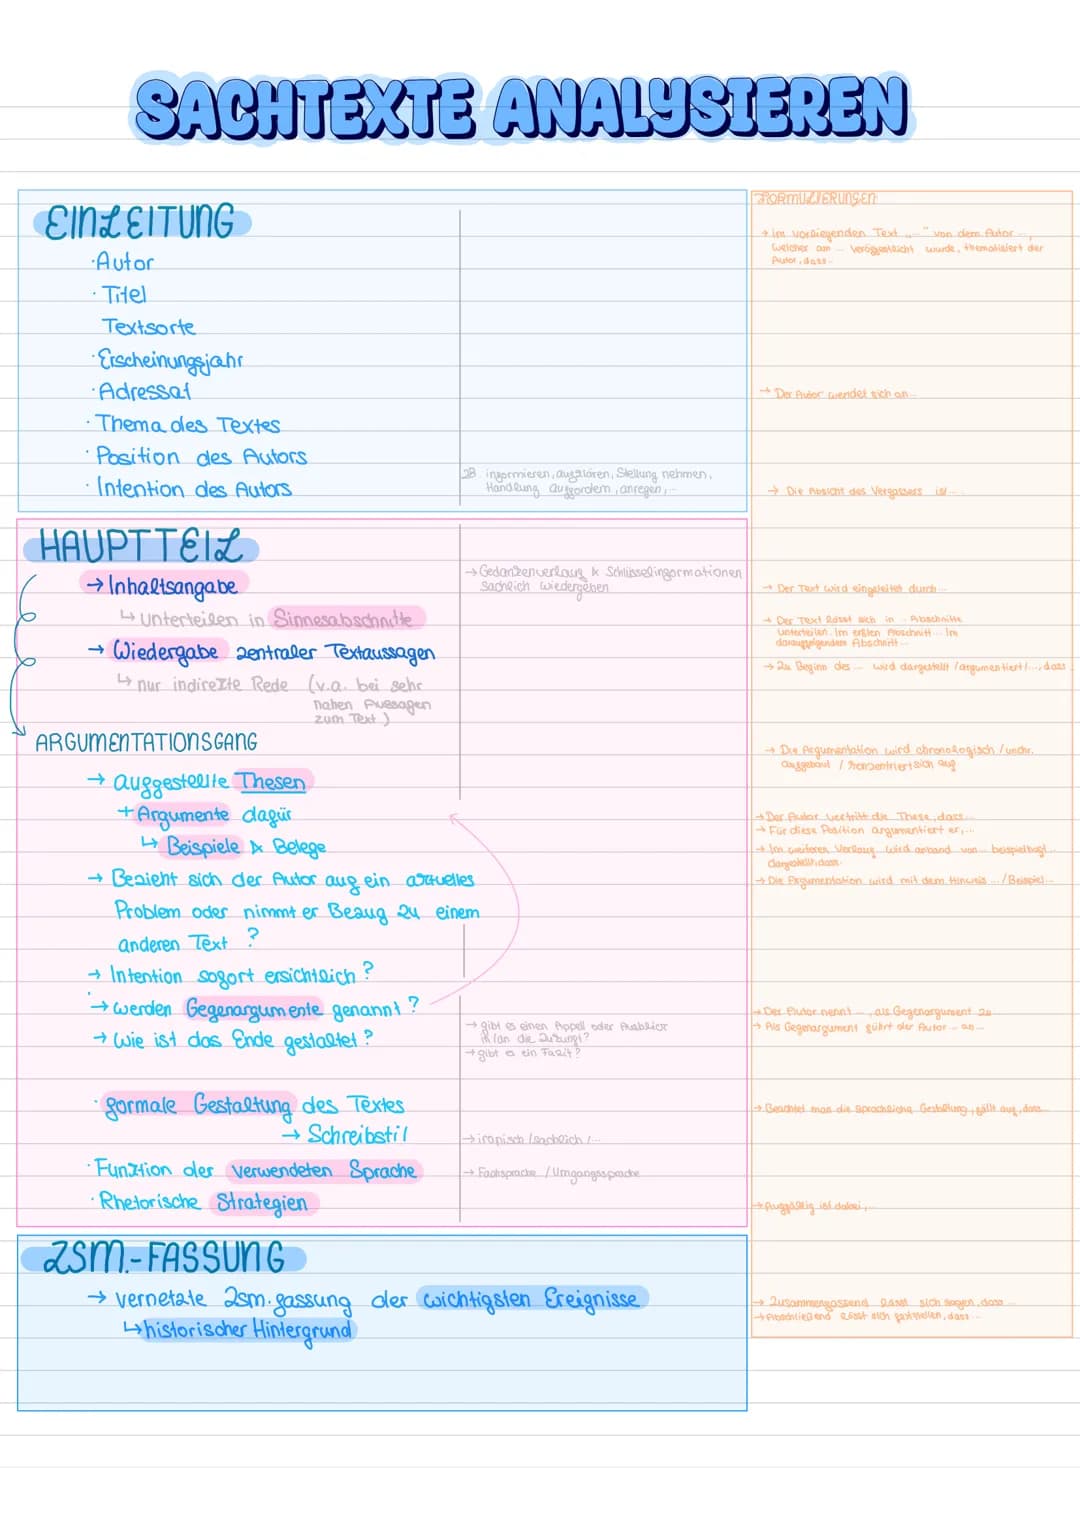 SACHTEXTE ANALYSIEREN
EINLEITUNG
· Autor
· Titel
Textsorte
· Erscheinungsjahr
· Adressat
· Thema des Textes
· Position des Autors
· Intention des Autors
ZB. informieren, aufklären, Stellung nehmen,
Handlung auffordern, anregen,...
HAUPTTEIL
→ Inhaltsangabe
→ Gedankenverlauf & Schlüsselinformationen
sachlich wiedergeben
↳ unterteilen in Sinnesabschnitte
→ Wiedergabe zentraler Textaussagen
↳ nur indirekte Rede (v.a. bei sehr
nahen Aussagen
zum Text)
ARGUMENTATIONSGANG
→ aufgestellte Thesen
+ Argumente dafür
↳ Beispiele & Belege
→ Bezieht sich der Autor auf ein aktuelles
Problem oder nimmt er Bezug zu einem
anderen Text ?
→ Intention sofort ersichtlich ?
→ werden Gegenargumente genannt ?
→ Wie ist das Ende gestaltet ?
→ gibt es einen Appell oder Ausblick
in/an die Zukunft?
→ gibt es ein Fazit?
· formale Gestaltung des Textes
→ Schreibstil
→ ironisch / sachlich /...
· Funktion der verwendeten Sprache
→ Fachsprache / Umgangssprache
· Rhetorische Strategien
ZSM.-FASSUNG
→ vernetzte Zsm.fassung der wichtigsten Ereignisse
↳ historischer Hintergrund
FORMULIERUNGEN
→ im vorliegenden Text „..." von dem Autor ...,
welcher am ... veröffentlicht wurde, thematisiert der
Autor, dass...
→ Der Autor wendet sich an...
→ Die Absicht des Verfassers ist...
→ Der Text wird eingeleitet durch...
→ Der Text lässt sich in ... Abschnitte
unterteilen. Im ersten Abschnitt... Im
darauffolgendem Abschnitt...
→ Zu Beginn des ... wird dargestellt /argumentiert/..., dass
→ Die Argumentation wird chronologisch / unchr.
aufgebaut / konzentriert sich auf
→ Der Autor vertritt die These, dass...
→ Für diese Position argumentiert er,...
→ Im weiteren Verlauf wird anhand von... beispielhaft...
dargestellt, dass.
→ Die Argumentation wird mit dem Hinweis .../Beispiel...
→ Der Autor nennt ..., als Gegenargument zu
→ Als Gegenargument führt der Autor ... an...
→ Beachtet man die sprachliche Gestaltung, fällt auf, dass...
→ Auffällig ist dabei,...
→ Zusammenfassend lässt sich sagen, dass ...
→ Abschließend lässt sich feststellen, dass...